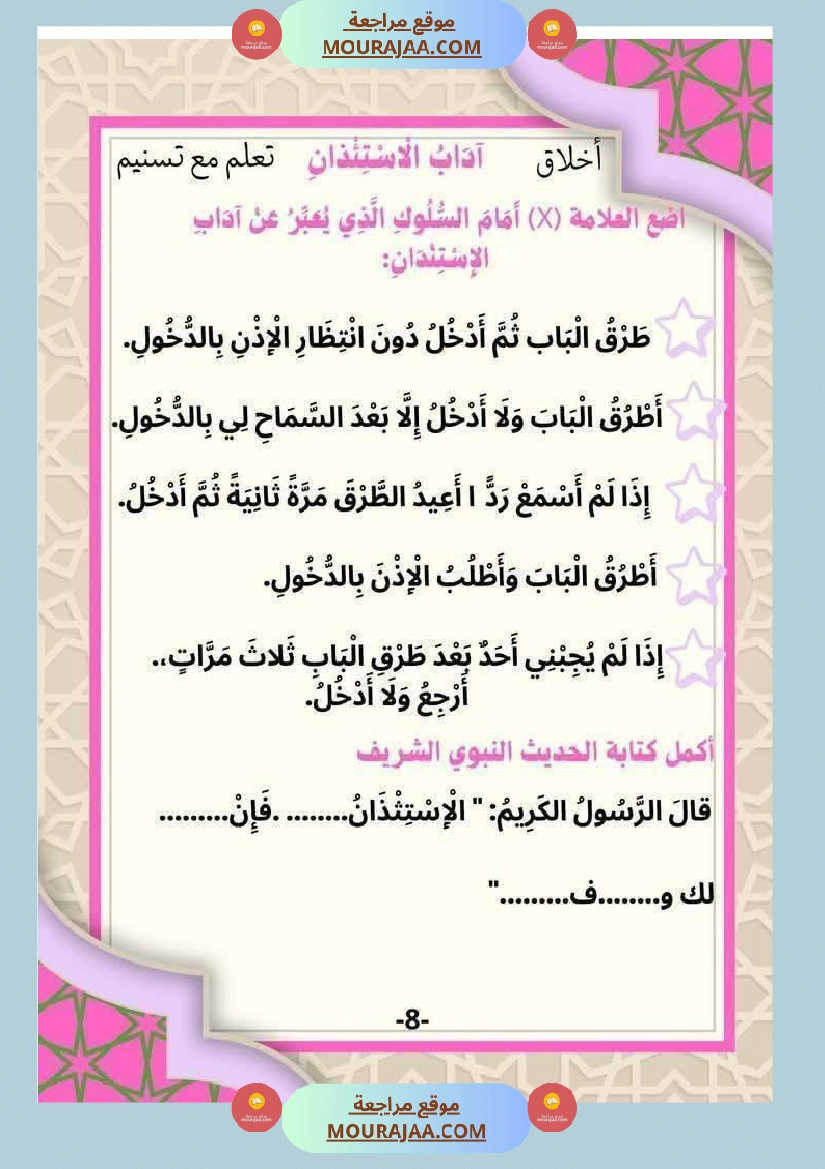 موقع مراجعة
MOURAJAA.COM
أخلاق آدَابُ الْاسْتِئْذانِ تعلم مع تسنيم
اضع العلامة (X) أَمَامَ السُّلُوكِ الَّذِي يُعَبِّرُ عَنْ آدَابِ
الإِسْتِئْدَانِ:
طَرْقُ الْبَاب ثُمَّ أَدْخُلُ دُونَ انْتِظَارِ الْإِذْنِ بِالدُّخُولِ.
أَطْرُقُ الْبَابَ وَلَا أَدْخُلُ إِلَّا بَعْدَ السَّمَاحِ لِي بِالدُّخُولِ.
إِذَا لَمْ أَسْمَعْ رَدًّ ا أَعِيدُ الطَّرْقَ مَرَّةً ثَانِيَةً ثُمَّ أَدْخُلُ.
أَطْرُقُ الْبَابَ وَأَطْلُبُ الْإِذْنَ بِالدُّخُولِ.
إِذَا لَمْ يُجِبْنِي أَحَدٌ بَعْدَ طَرْقِ الْبَابِ ثَلاثَ مَرَّاتٍ،.
أَرْجِعُ وَلَا أَدْخُلُ.
أكمل كتابة الحديث النبوي الشريف
قالَ الرَّسُولُ الكَرِيمُ: " الْإِسْتِئْذَانُ........ .فَإِنْ.........
لك و........ف........."
-8-
موقع مراجعة
MOURAJAA.COM